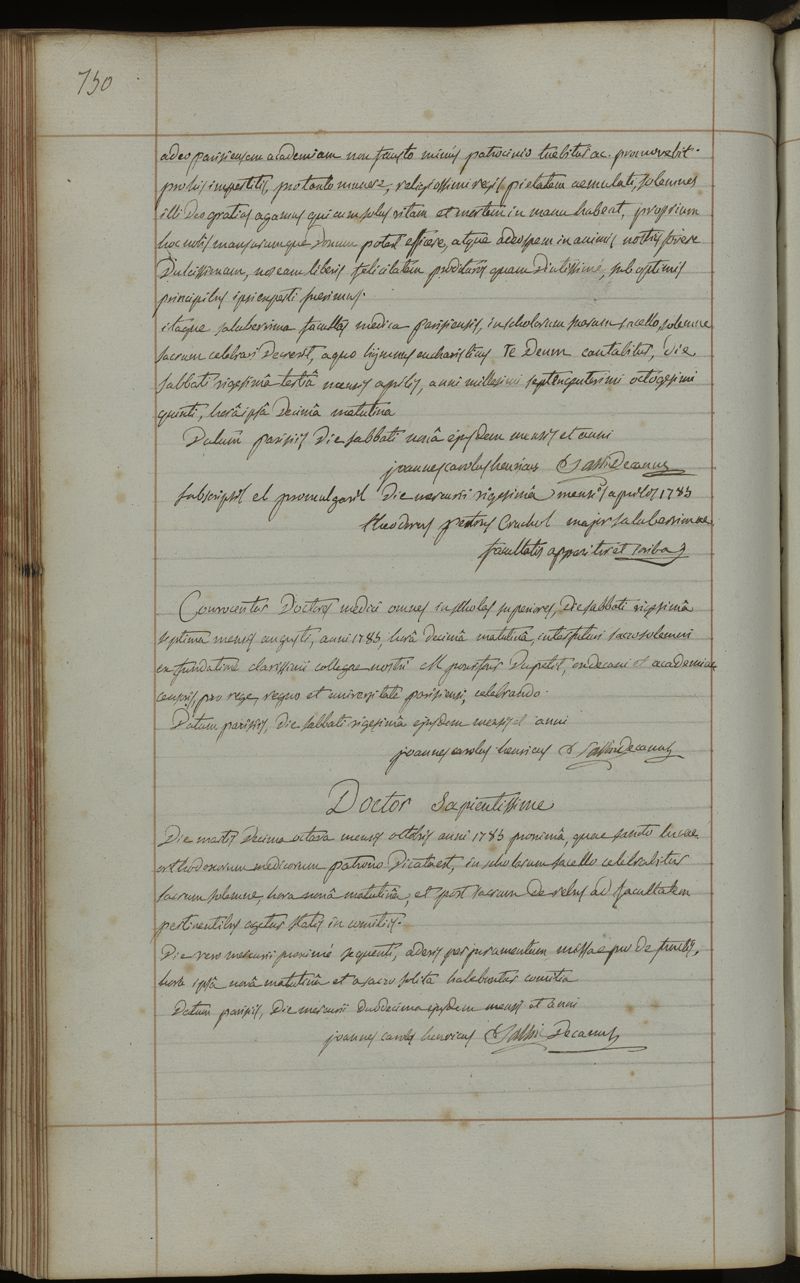 750
adeo parisiensem academiam non fausto minùs patrocinio tuebitur ac promovebit.
pro his impertitis, pro tanto munere, religiosissimi regis pietatem aemulati, solemnes
illi deo gratias agamus qui cum solus vitam et mortem in manu habeat, proprium
hoc nobis mansurumque donum potest efficere, atque adeo spem in animis nostris fovere
Dulcissimam, nos eam liberis felicitatem prodituros quam diutissimè, sub optimis
principibus ipsi experti fuerimus.
itaque saluberrima facultas medica parisiensis, in scholarum suarum sacello, solemne
sacrum celebrari Decrevit, a quo hymnus eucharisticus Te Deum cantabitur, die
sabbati vigesimâ tertiâ mensis aprilis, anni millesimi septengentesimi octogesimi
quinti, horâ ipsâ Decimâ matutina
Datum parisiis Die sabbati nonâ ejusdem mensis et anni
joannes carolus henricus Sallin Decanus
subscripsit et promulgavit die mercurii vigesimâ mensis aprilis 1785
theodorus petrus Cruchot major saluberrimae
facultatis apparitor et scriba
Convocentur Doctores medici omnes in scholas superiores, Die sabbati vigesimâ
septima mensis augusti, anni 1785, horâ decimâ matutinâ, interfuturi sacro solemni
ex fundatione clarissimi collegae nostri M. Dupetit, exdecani et academiae
censoris, pro rege, regno et universitate parisiensi, celebrando.
Datum parisiis, Die sabbati vigesimâ ejusdem mensis et anni
joannes carolus henricus Sallin Decanus
Doctor Sapientissime
Die martis Decima octava mensis octobris anni 1785 proximâ, quae sancto lucae
orthodoxorum medicorum patrono Dicata est, in scholarum sacello celebrabitur
sacrum solemne, hora nonâ matutinâ, et post sacrum de rebus ad facultatem
pertinentibus agetur statis in comitiis.
Die vero mercurii proximè sequenti, aderis per juramentum missae pro Defunctis,
horâ ipsâ nonâ matutinâ et a sacro solita habebuntur comitia
Datum parisiis, Die mercurii Duodecima ejusdem mensis et anni
joannes carolus henricus Sallin Decanus